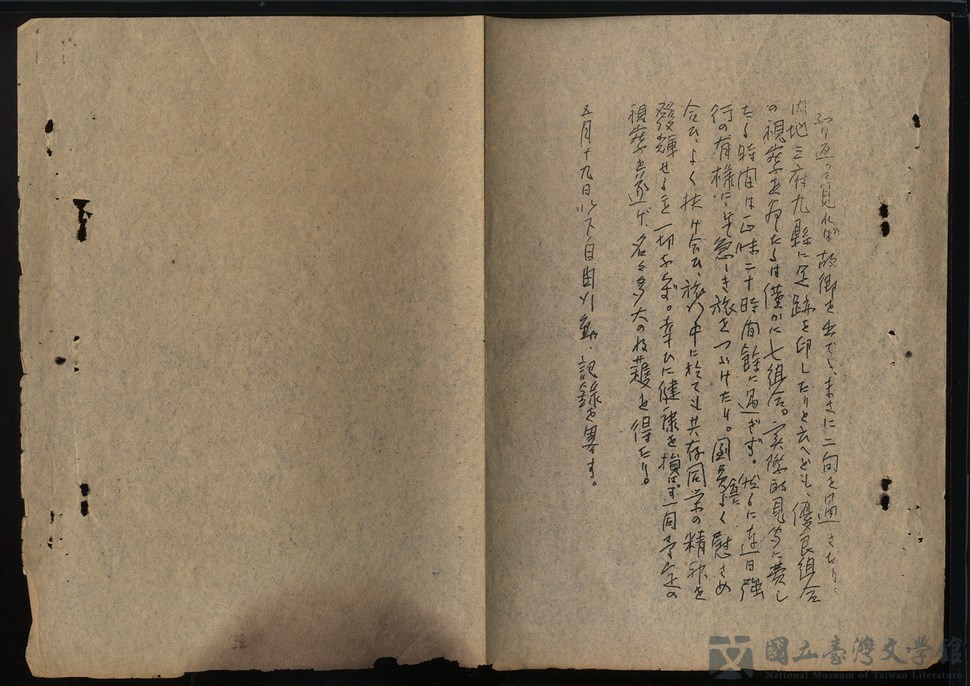 ふり返つて見れば故郷を出でゝ、まさに二旬を過ぎたり。
内地三府九縣に足跡を印したりと云へども、優良組合
の視察を為したるは僅かに七組合。実際的見学に費し
たる時間は正味二十時間餘に過ぎず。然るに連日強
行の有様にて急しき旅をつゞけたり。団員よく慰さめ
合ひ、よく扶け合ひ、旅行中に於ても共存同栄の精神を
發輝せる 一切ならず。幸ひに健康を損はず一同予定の
視察を遂げ、各々多大の收獲を得たり。
五月十九日以下自由行動、記録を畧す。
國立臺灣文學館
National Museum of Taiwan Literature